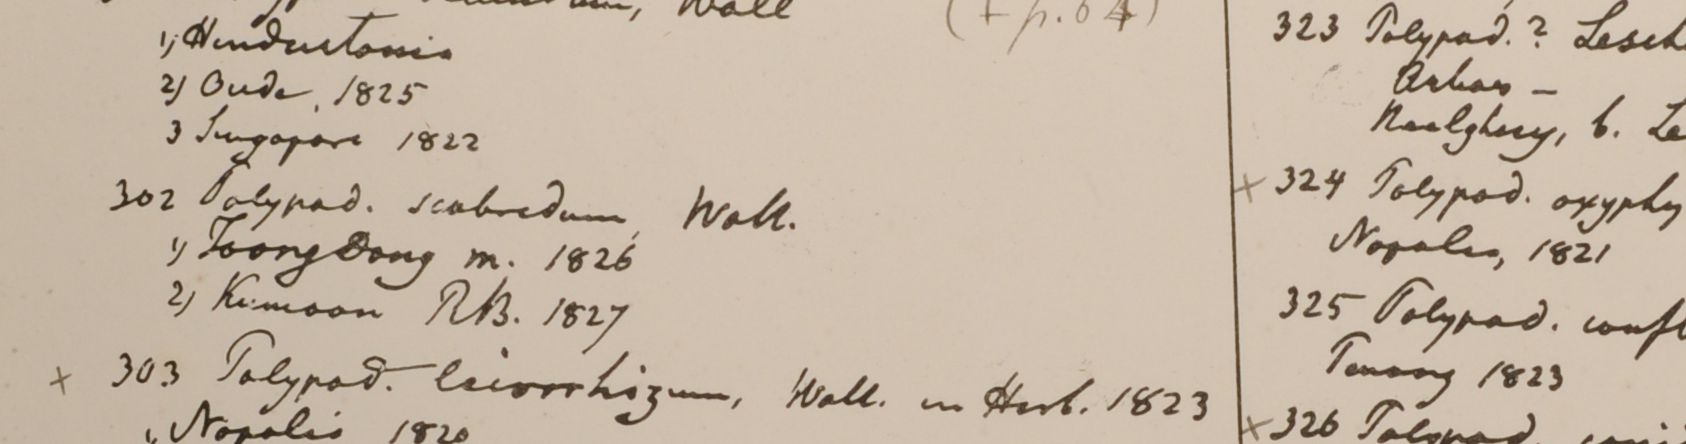 Wall
(+ p. 64)
1) Hindustania
2) Oude, 1825
3 Singapore 1822
302 Polypod. scabredum, Wall.
1) Toong Dong m. 1826
2) Kumaon R.B. 1827
× 303 Polypod. leiorrhizum, Wall. in Herb. 1823
1, Napalia 1820
323 Polypod. ? Lesch
Neelghery, b. Le
× 324 Polypod. oxyphy
Napalia, 1821
325 Polypod. confl
Penang 1823
× 326 Polypod.